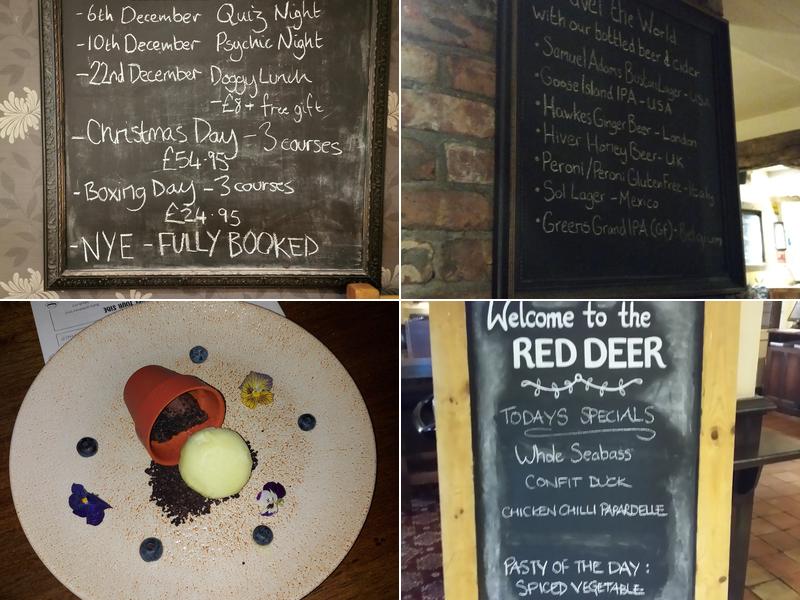 -6th December Quiz Night
-10th December Psychic Night
-22nd December Doggy Lunch
-£8+ free gift
-Christmas Day -3 courses
£54.95
-Boxing Day -3 courses
£24.95
-NYE - FULLY BOOKED
the World
with our bottled beer & cider
• Samuel Adams Boston Lager - USA
• Goose Island IPA - USA
• Hawkes Ginger Beer - London
• Hiver Honey Beer - UK
• Peroni/Peroni Gluten Free - Italy
• Sol Lager - Mexico
• Greens Grand IPA (GF) - Belgium
YOUR SIDE
Welcome to the
RED DEER
TODAYS SPECIALS
Whole Seabass
CONFIT DUCK
CHICKEN CHILLI PAPARDELLE
PASTY OF THE DAY :
SPICED VEGETABLE